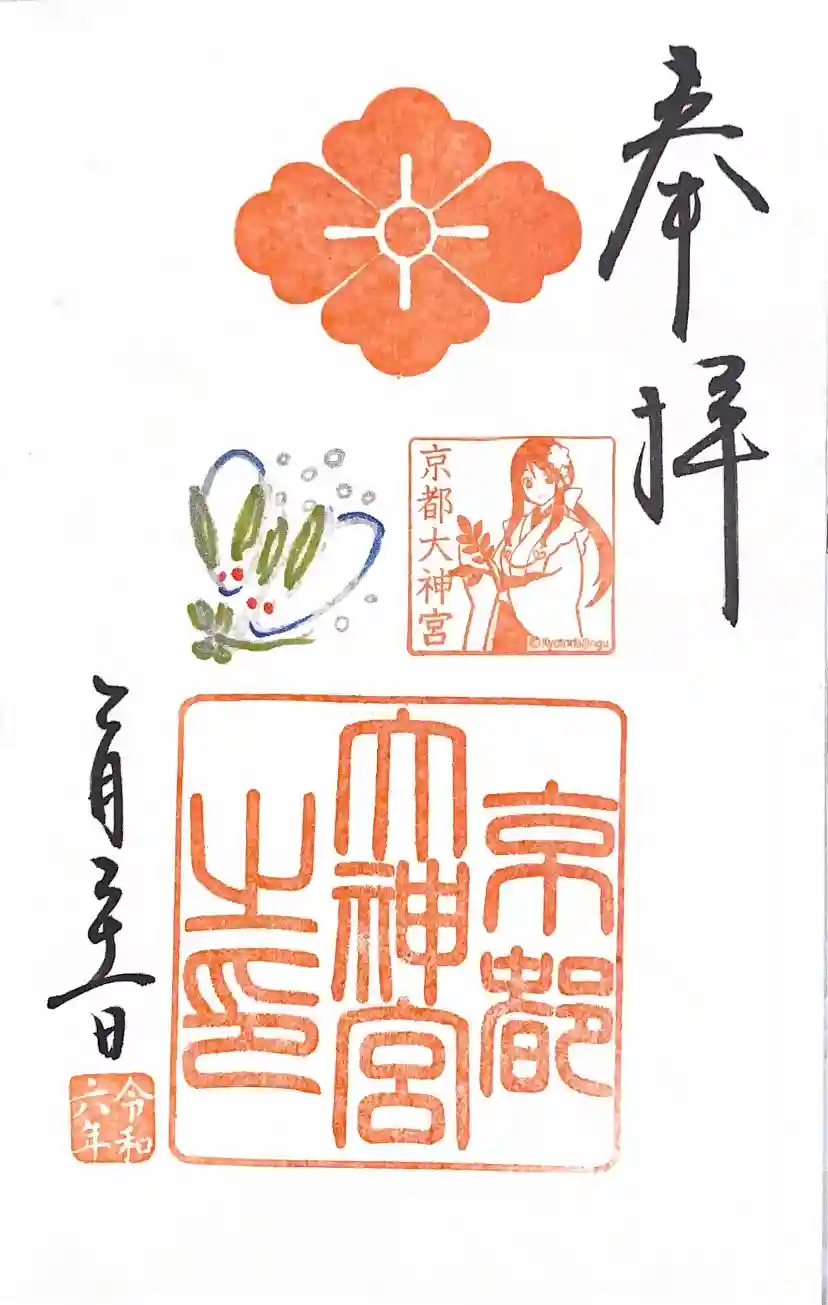 奉拝
京都大神宮
©Kyotodaijingu
京都
大神宮
之印
二月二十一日
令和
六年